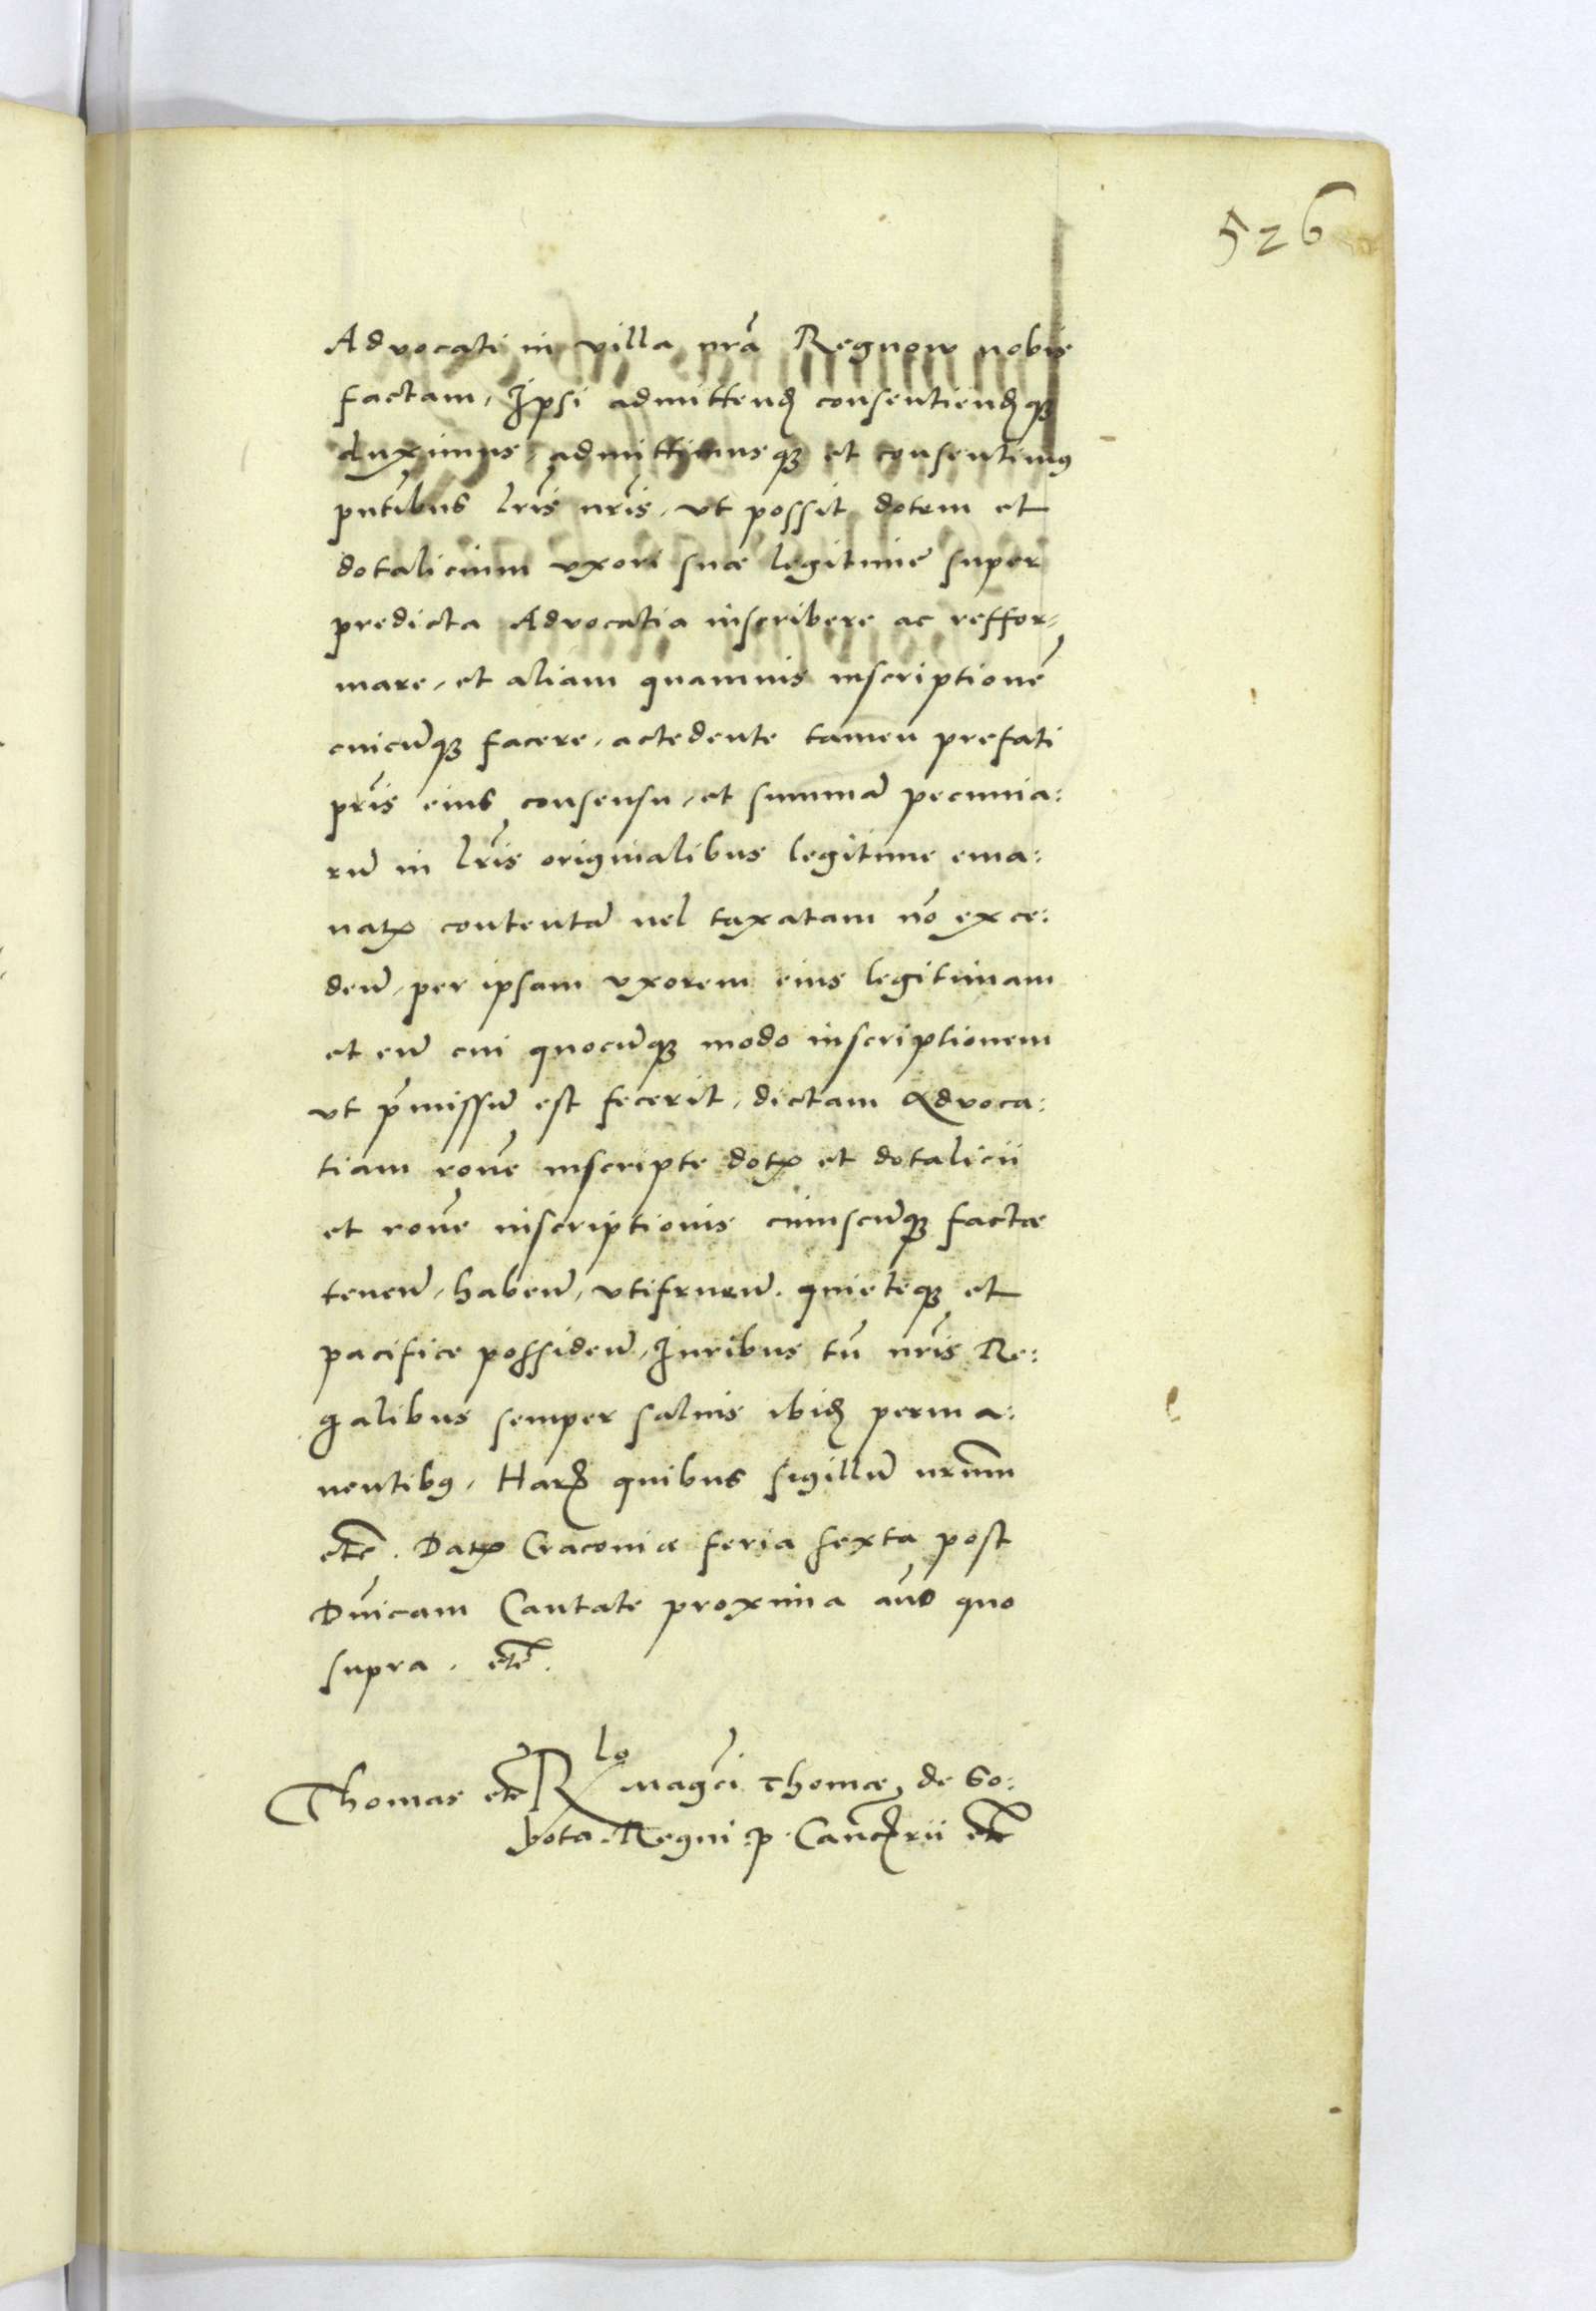 526
Advocati in villa nrã Regnow nobis
factam, Ipsi admittend consentiendqꝫ
duximus, admittimusqꝫ et consentimꝰ
pntibus lris nris, vt possit dotem et
dotalicium vxori suæ legitimẽ super
predicta Advocatia inscribere ac reffor=
mare, et aliam quamuis inscriptionẽ
cuicũqꝫ facere, accedente tamen prefati
pris eius consensu, et summã pecunia:
rũ in lris originalibus legitime ema:
natꝭ contentã uel taxatam nõ exce:
deñ, per ipsam vxorem eius legitimam
et eũ cui quocũqꝫ modo inscriptionem
vt pᵉmissũ est fecerit, dictam Advoca:
tiam rone inscripte dotꝭ et dotalicii
et rone inscriptionis cuiuscũqꝫ factæ
teneñ, habeñ, vtifrueñ. quieteqꝫ et
pacifice possideñ, Iuribus tñ nris Re:
galibus semper saluis ibid perma:
nentibꝰ, Harꝭ quibus sigillũ nrum
etc. Datꝭ Cracoviæ feria sexta post
Dnicam Cantate proxima anõ quo
supra. etc.
Thomas etc Rlo magci Thomæ de So:
bota. Regni .p. Cancrii etc